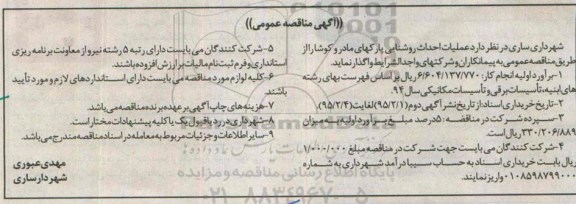 ((آگهی مناقصه عمومی))
شهرداری ساری در نظر دارد عملیات احداث روشنایی پارکهای مادر و کوشا را از
طریق مناقصه عمومی به پیمانکاران و شرکتهای واجدالشرایط واگذار نماید.
۱-برآورد اولیه انجام کار: ۶/۶۰۴/۱۳۷/۷۷۰ ریال بر اساس فهرست بهای رشته
های ابنیه، تأسیسات برقی و تأسیسات مکانیکی سال ۹۴.
۲-تاریخ خریداری اسناد از تاریخ نشر آگهی دوم (۹۵/۲/۱) لغایت (۹۵/۲/۴).
۳-سپرده شرکت در مناقصه: ۵ درصد مبلغ برآورد اولیه به میزان
۳۳۰/۲۰۶/۸۸۹ ریال است.
۴-شرکت کنندگان می بایست جهت شرکت در مناقصه مبلغ ۱/۰۰۰/۰۰۰
ریال بابت خریداری اسناد به حساب سیبا درآمد شهرداری به شماره
۰۱۰۸۵۹۸۷۹۹۰۰۰ واریز نمایند.
۵-شرکت کنندگان می بایست دارای رتبه ۵ رشته نیرو از معاونت برنامه ریزی
استانداری و فرم ثبت نام مالیات بر ارزش افزوده باشند.
۶-کلیه لوازم مورد مناقصه می بایست دارای استانداردهای لازم و مورد تأیید
باشند.
۷-هزینه های چاپ آگهی بر عهده برنده مناقصه می باشد.
۸-شهرداری در رد یا قبول یک یا کلیه پیشنهادات مختار است.
۹-سایر اطلاعات و جزئیات مربوط به معامله در اسناد مناقصه مندرج می باشد.
مهدی عبوری
شهردار ساری
پایگاه اطلاع رسانی مناقصه و مزایده
۰۲۱-۸۸۳۴۹۶۷۰-۵